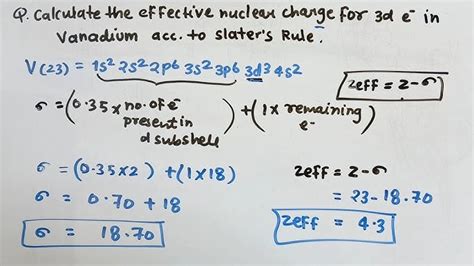 Q. Calculate the effective nuclear charge for 3d e⁻ in
Vanadium acc. to slater's Rule.
V(23) = 1s² 2s² 2p⁶ 3s² 3p⁶ 3d³ 4s²
Zeff = Z-σ
σ = (0.35 × no. of e⁻ present in d subshell) + (1 × remaining e⁻)
σ = (0.35×2) + (1×18)
σ = 0.70 + 18
σ = 18.70
Zeff = Z-σ
= 23-18.70
Zeff = 4.3